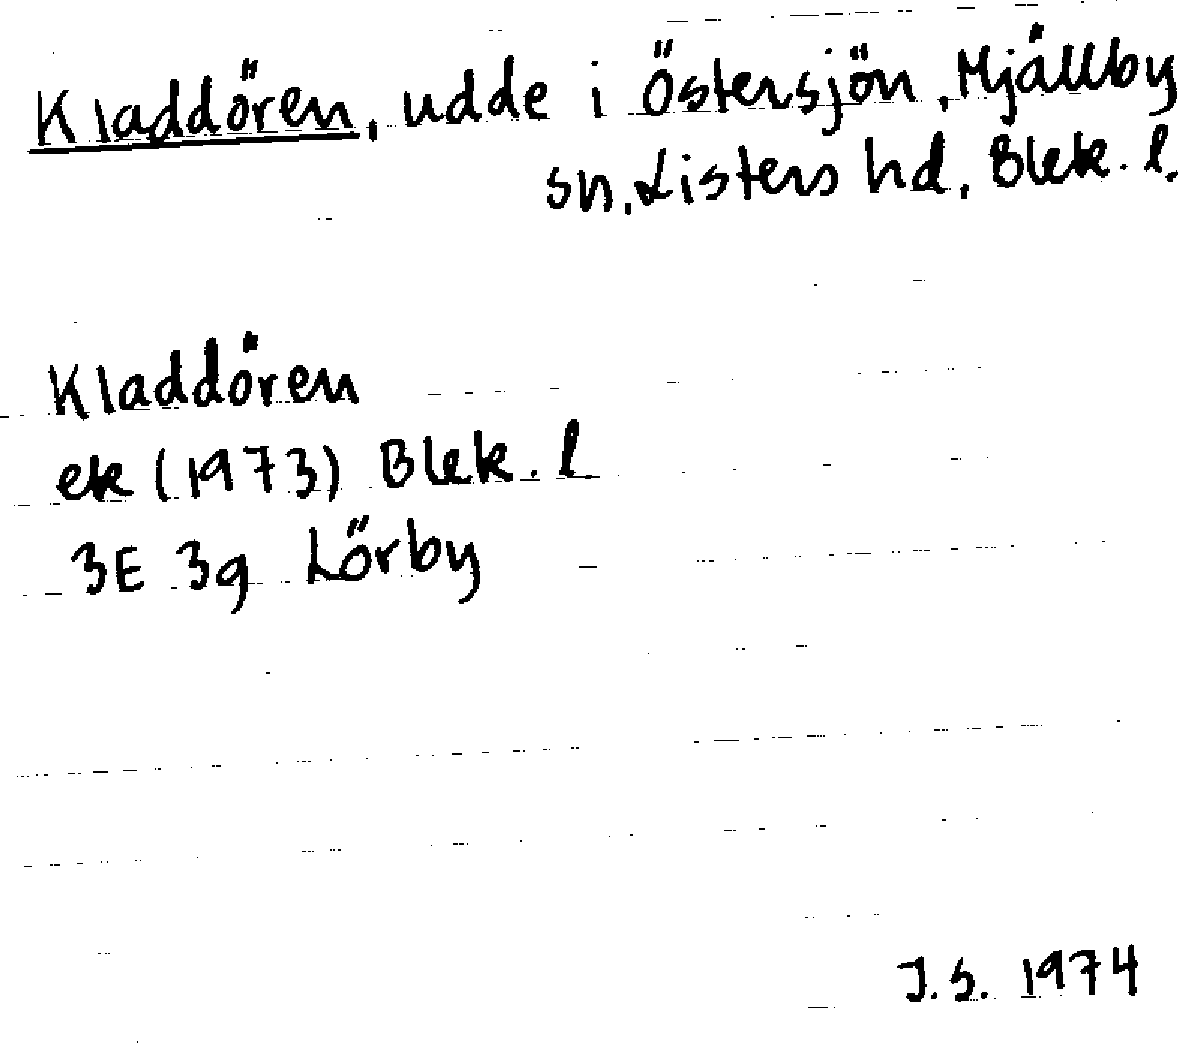 Kladdören, udde i Östersjön, Mjällby
sn, Listers hd, Blek. l.
Kladdören
ek (1973) Blek. l
3E 3g Lörby
J.S. 1974